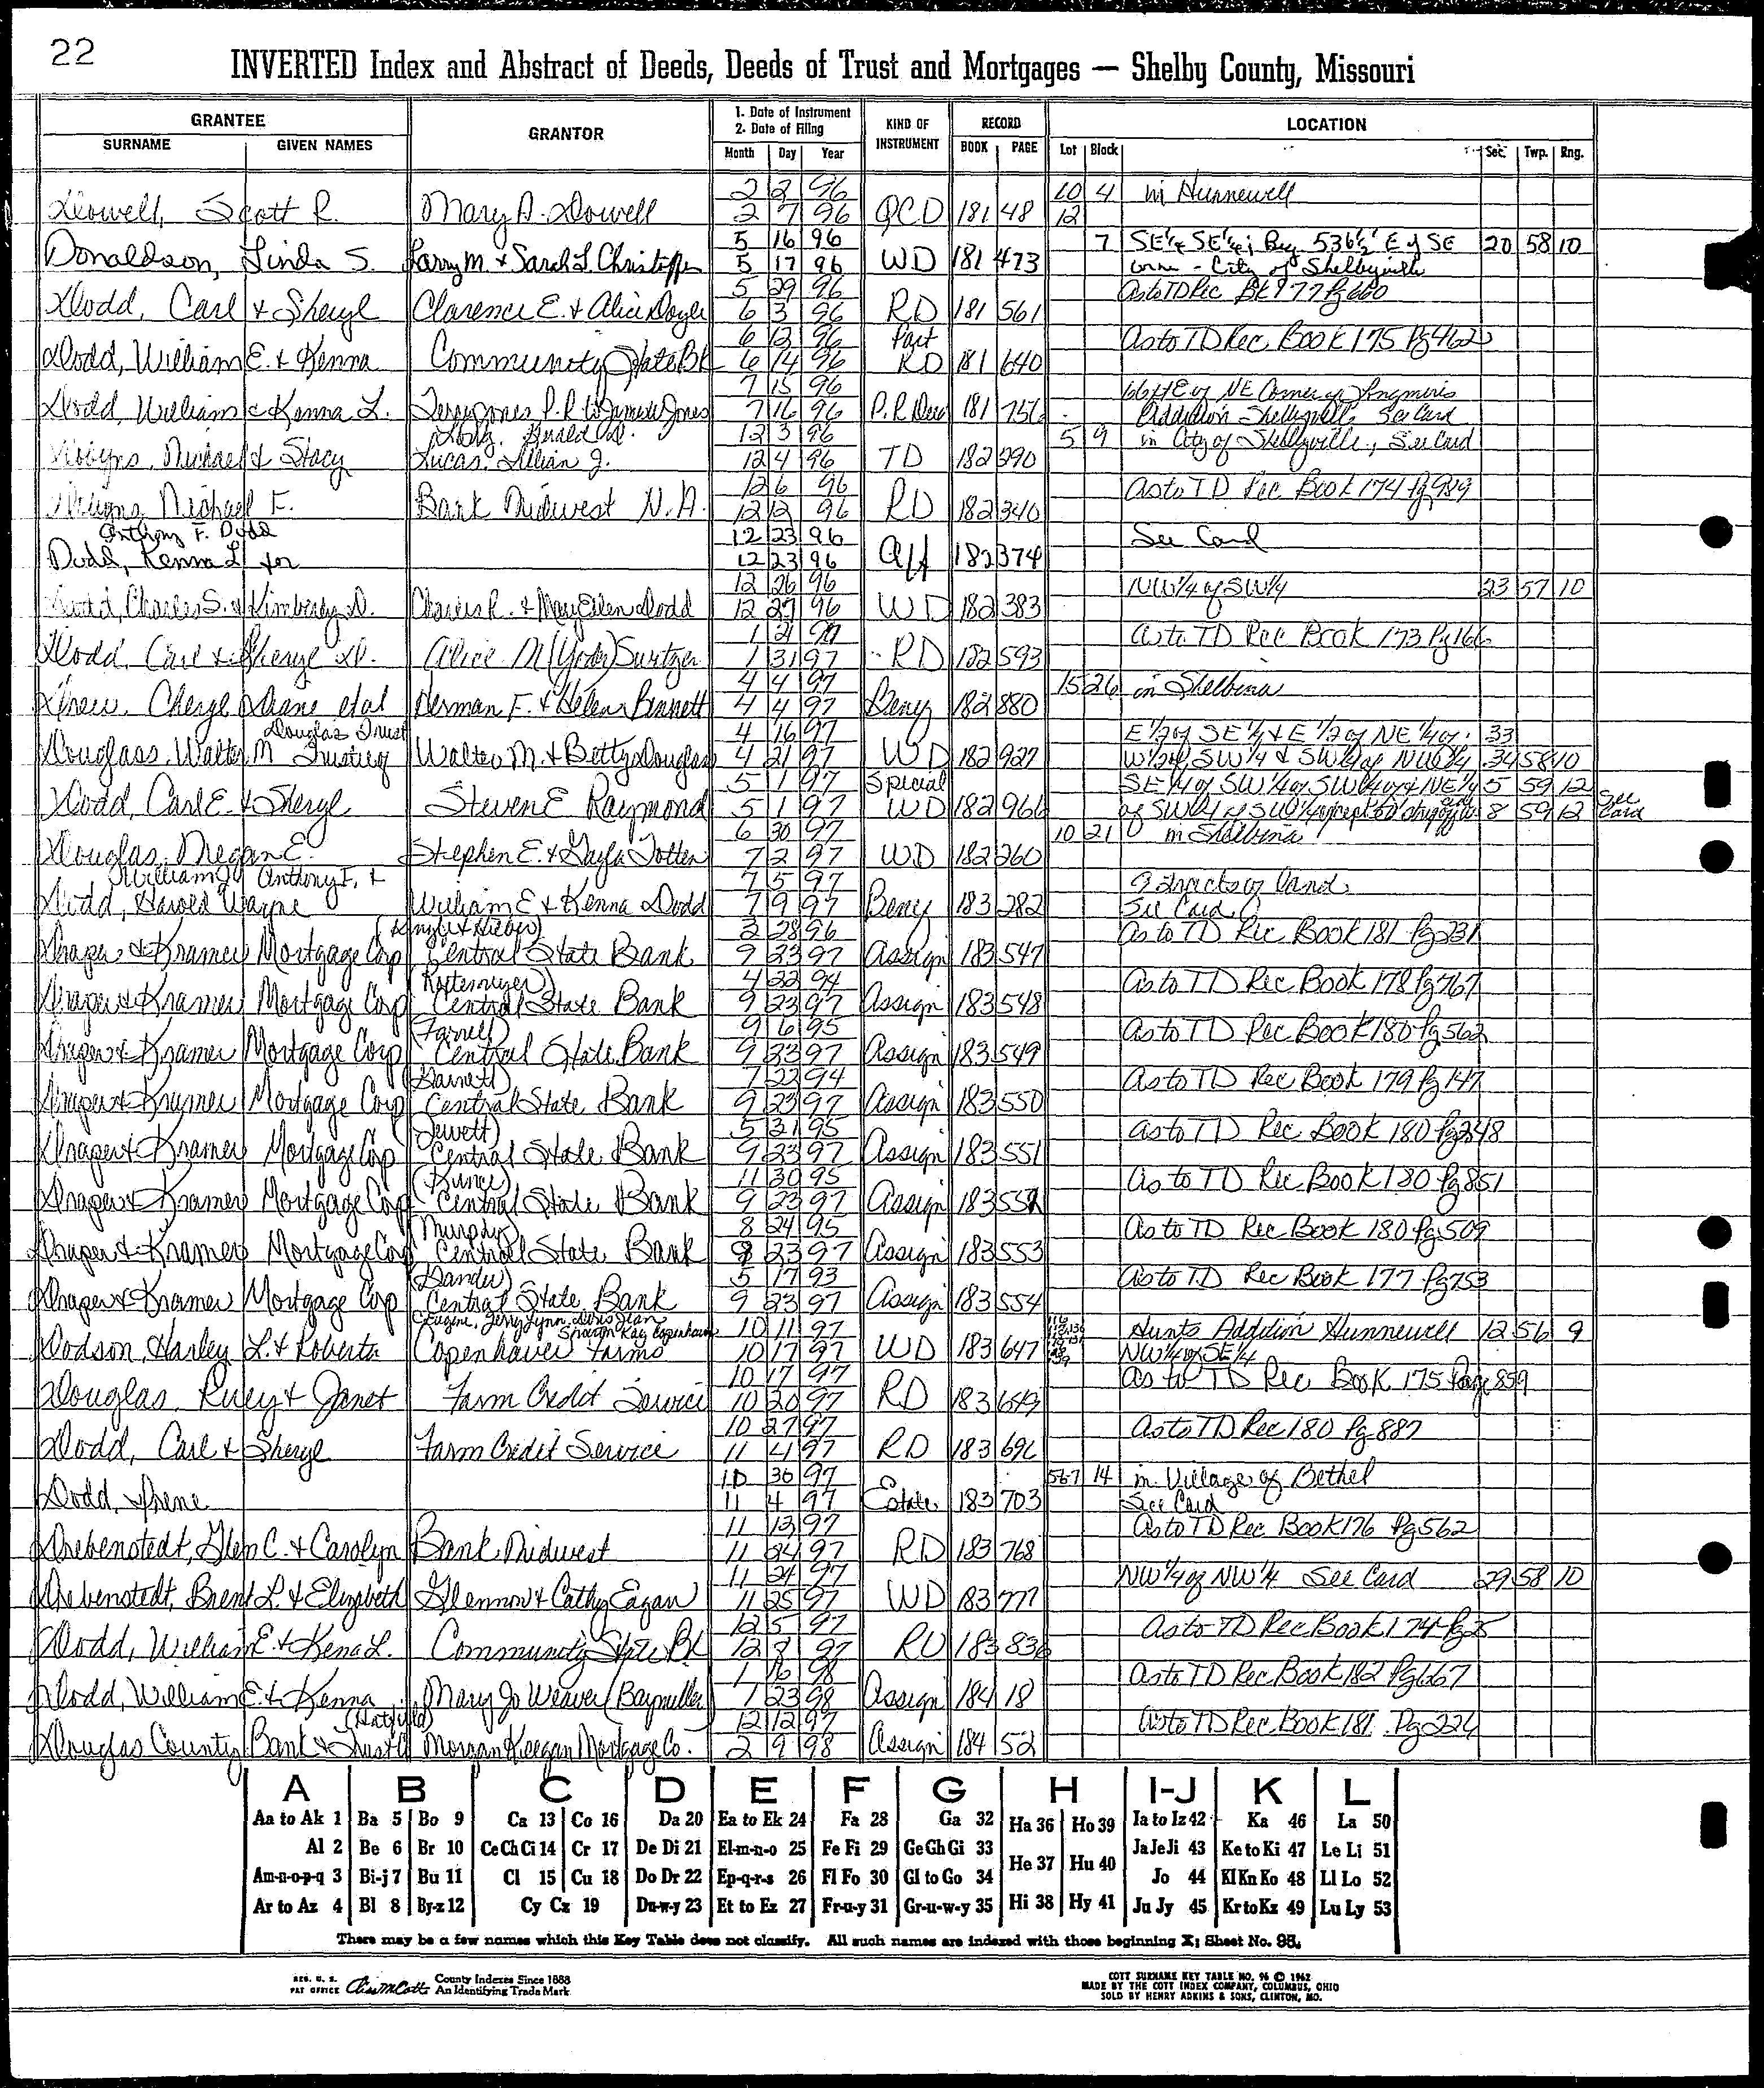 22
INVERTED Index and Abstract of Deeds, Deeds of Trust and Mortgages — Shelby County, Missouri
GRANTEE GRANTOR 1. Date of Instrument 2. Date of Filing KIND OF INSTRUMENT RECORD LOCATION
SURNAME GIVEN NAMES Month Day Year BOOK PAGE Lot Block Sec. Twp. Rng.
2 2 96 10 4 in Hunnewell
Dowell, Scott R. Mary A. Dowell 2 7 96 QCD 181 48 12
5 16 96 7 SE¼ SE¼; Beg 536½' E of SE 20 58 10
Donaldson, Linda S. Larry M. & Sarah L. 5 17 96 WD 181 473 - City of Shelbyville
5 29 96 As to TD Rec Bk 177 Pg 660
Dodd, Carl & Sheryl Clarence E. & Alice Doyle 6 3 96 RD 181 561
6 12 96 Part As to TD Rec. Book 175 Pg 462
Dodd, William E. & Kenna Community State Bk 6 14 96 RD 181 640
7 15 96 66 ft E of NE Corner of
Dodd, William & Kenna L. 7 16 96 P.R. Deed 181 756 Addition Shelbyville See Card
12 3 96 5 9 in City of Shelbyville, See Card
Michael & Stacy Lucas, Lillian J. 12 4 96 TD 182 290
12 6 96 As to TD Rec Book 174 Pg 989
Michael F. Bank Midwest N.A. 12 12 96 RD 182 340
Anthony F. Dodd 12 23 96 See Card
Dodd, Kenna L. for 12 23 96 Aff 182 374
12 26 96 NW¼ of SW¼ 23 57 10
Dodd, Charles S. & Kimberly D. Charles R. & Mary Ellen Dodd 12 27 96 WD 182 383
1 21 97 As to TD Rec Book 173 Pg 166
Dodd, Carl & Sheryl D. Alice M (Yoder) Switzer 1 31 97 RD 182 593
4 4 97 15 26 in Shelbina
Drew, Cheryl Diane etal Herman F. & Helen Bennett 4 4 97 Beny 182 880
Douglas Trust 4 16 97 E½ of SE¼ & E½ of NE¼ of 33
Douglass, Walter M Trustee of Walter M. & Betty Douglas 4 21 97 WD 182 927 W½ of SW¼ & SW¼ of NW¼ 34 58 10
5 1 97 Special SE¼ of SW¼ of SW¼ of & NE¼ 5 59 12
Dodd, Carl E. & Sheryl Steven E Raymond 5 1 97 WD 182 966 of SW¼ of SW¼ except 8 59 12 See Card
6 30 97 10 21 in Shelbina
Douglas, Megan E. Stephen E. & Gayla Totten 7 2 97 WD 182 260
William J Anthony F. & 7 5 97 9 tracts of land
Dodd, Harold Wayne William E & Kenna Dodd 7 9 97 Beny 183 282 See Card
2 28 96 As to TD Rec. Book 181 Pg 231
Draper & Kramer Mortgage Corp Central State Bank 9 23 97 Assign 183 547
4 22 94 As to TD Rec Book 178 Pg 767
Draper & Kramer Mortgage Corp Central State Bank 9 23 97 Assign 183 548
(Farrell) 9 6 95 As to TD Rec Book 180 Pg 562
Draper & Kramer Mortgage Corp Central State Bank 9 23 97 Assign 183 549
(Barnett) 7 22 94 As to TD Rec Book 179 Pg 147
Draper & Kramer Mortgage Corp Central State Bank 9 23 97 Assign 183 550
(Jewett) 5 31 95 As to TD Rec. Book 180 Pg 248
Draper & Kramer Mortgage Corp Central State Bank 9 23 97 Assign 183 551
(Bunce) 11 30 95 As to TD Rec. Book 180 Pg 851
Draper & Kramer Mortgage Corp Central State Bank 9 23 97 Assign 183 552
(Murphy) 8 24 95 As to TD Rec Book 180 Pg 509
Draper & Kramer Mortgage Corp Central State Bank 9 23 97 Assign 183 553
5 17 93 As to TD Rec Book 177 Pg 753
Draper & Kramer Mortgage Corp Central State Bank 9 23 97 Assign 183 554
Eugene, Jerry Lynn, Doris Jean Sharon Kay Copenhaver 10 11 97 Hunts Addition Hunnewell 12 56 9
Dodson, Harley L. & Roberta Copenhaver Farms 10 17 97 WD 183 647 NW¼ of SE¼
10 17 97 As to TD Rec Book 175 Page 859
Douglas, Riley & Janet Farm Credit Service 10 20 97 RD 183 649
10 27 97 As to TD Rec 180 Pg 887
Dodd, Carl & Sheryl Farm Credit Service 11 4 97 RD 183 696
10 30 97 567 14 in Village of Bethel
Dodd, Irene 11 4 97 Estate 183 703 See Card
11 13 97 As to TD Rec Book 176 Pg 562
Drebenstedt, Glen C. & Carolyn Bank Midwest 11 24 97 RD 183 768
11 24 97 NW¼ of NW¼ See Card 29 58 10
Drebenstedt, Brent L. & Elizabeth Glennon & Cathy Eagan 11 25 97 WD 183 777
12 5 97 As to TD Rec Book 174 Pg
Dodd, William E. & Kena L. Community State Bk 12 8 97 RD 183 836
1 16 98 As to TD Rec. Book 182 Pg 667
Dodd, William E. & Kenna Mary Jo Weaver (Baymiller) 1 23 98 Assign 184 18
(Hatfield) 12 12 97 As to TD Rec Book 181 Pg 224
Douglas County Bank & Trust Co Morgan Keegan Mortgage Co. 2 9 98 Assign 184 52
A B C D E F G H I-J K L
Aa to Ak 1 Ba 5 Bo 9 Ca 13 Co 16 Da 20 Ea to Ek 24 Fa 28 Ga 32 Ha 36 Ho 39 Ia to Iz 42 Ka 46 La 50
Al 2 Be 6 Br 10 Ce Ch Ci 14 Cr 17 De Di 21 El-m-n-o 25 Fe Fi 29 Ge Gh Gi 33 He 37 Hu 40 Ja Je Ji 43 Ke to Ki 47 Le Li 51
Am-n-o-p-q 3 Bi-j 7 Bu 11 Cl 15 Cu 18 Do Dr 22 Ep-q-r-s 26 Fl Fo 30 Gl to Go 34 Jo 44 Kl Kn Ko 48 Ll Lo 52
Ar to Az 4 Bl 8 By-z 12 Cy Cz 19 Du-w-y 23 Et to Ez 27 Fr-u-y 31 Gr-u-w-y 35 Hi 38 Hy 41 Ju Jy 45 Kr to Kz 49 Lu Ly 53
There may be a few names which this Key Table does not classify. All such names are indexed with those beginning X; Sheet No. 95.
REG. U. S. PAT OFFICE County Indexes Since 1888 An Identifying Trade Mark
COTT SURNAME KEY TABLE NO. 96 © 1962
MADE BY THE COTT INDEX COMPANY, COLUMBUS, OHIO
SOLD BY HENRY ADKINS & SONS, CLINTON, MO.